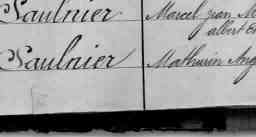 Saulnier Marcel Jean M
albert E
Saulnier Mathurin Ang